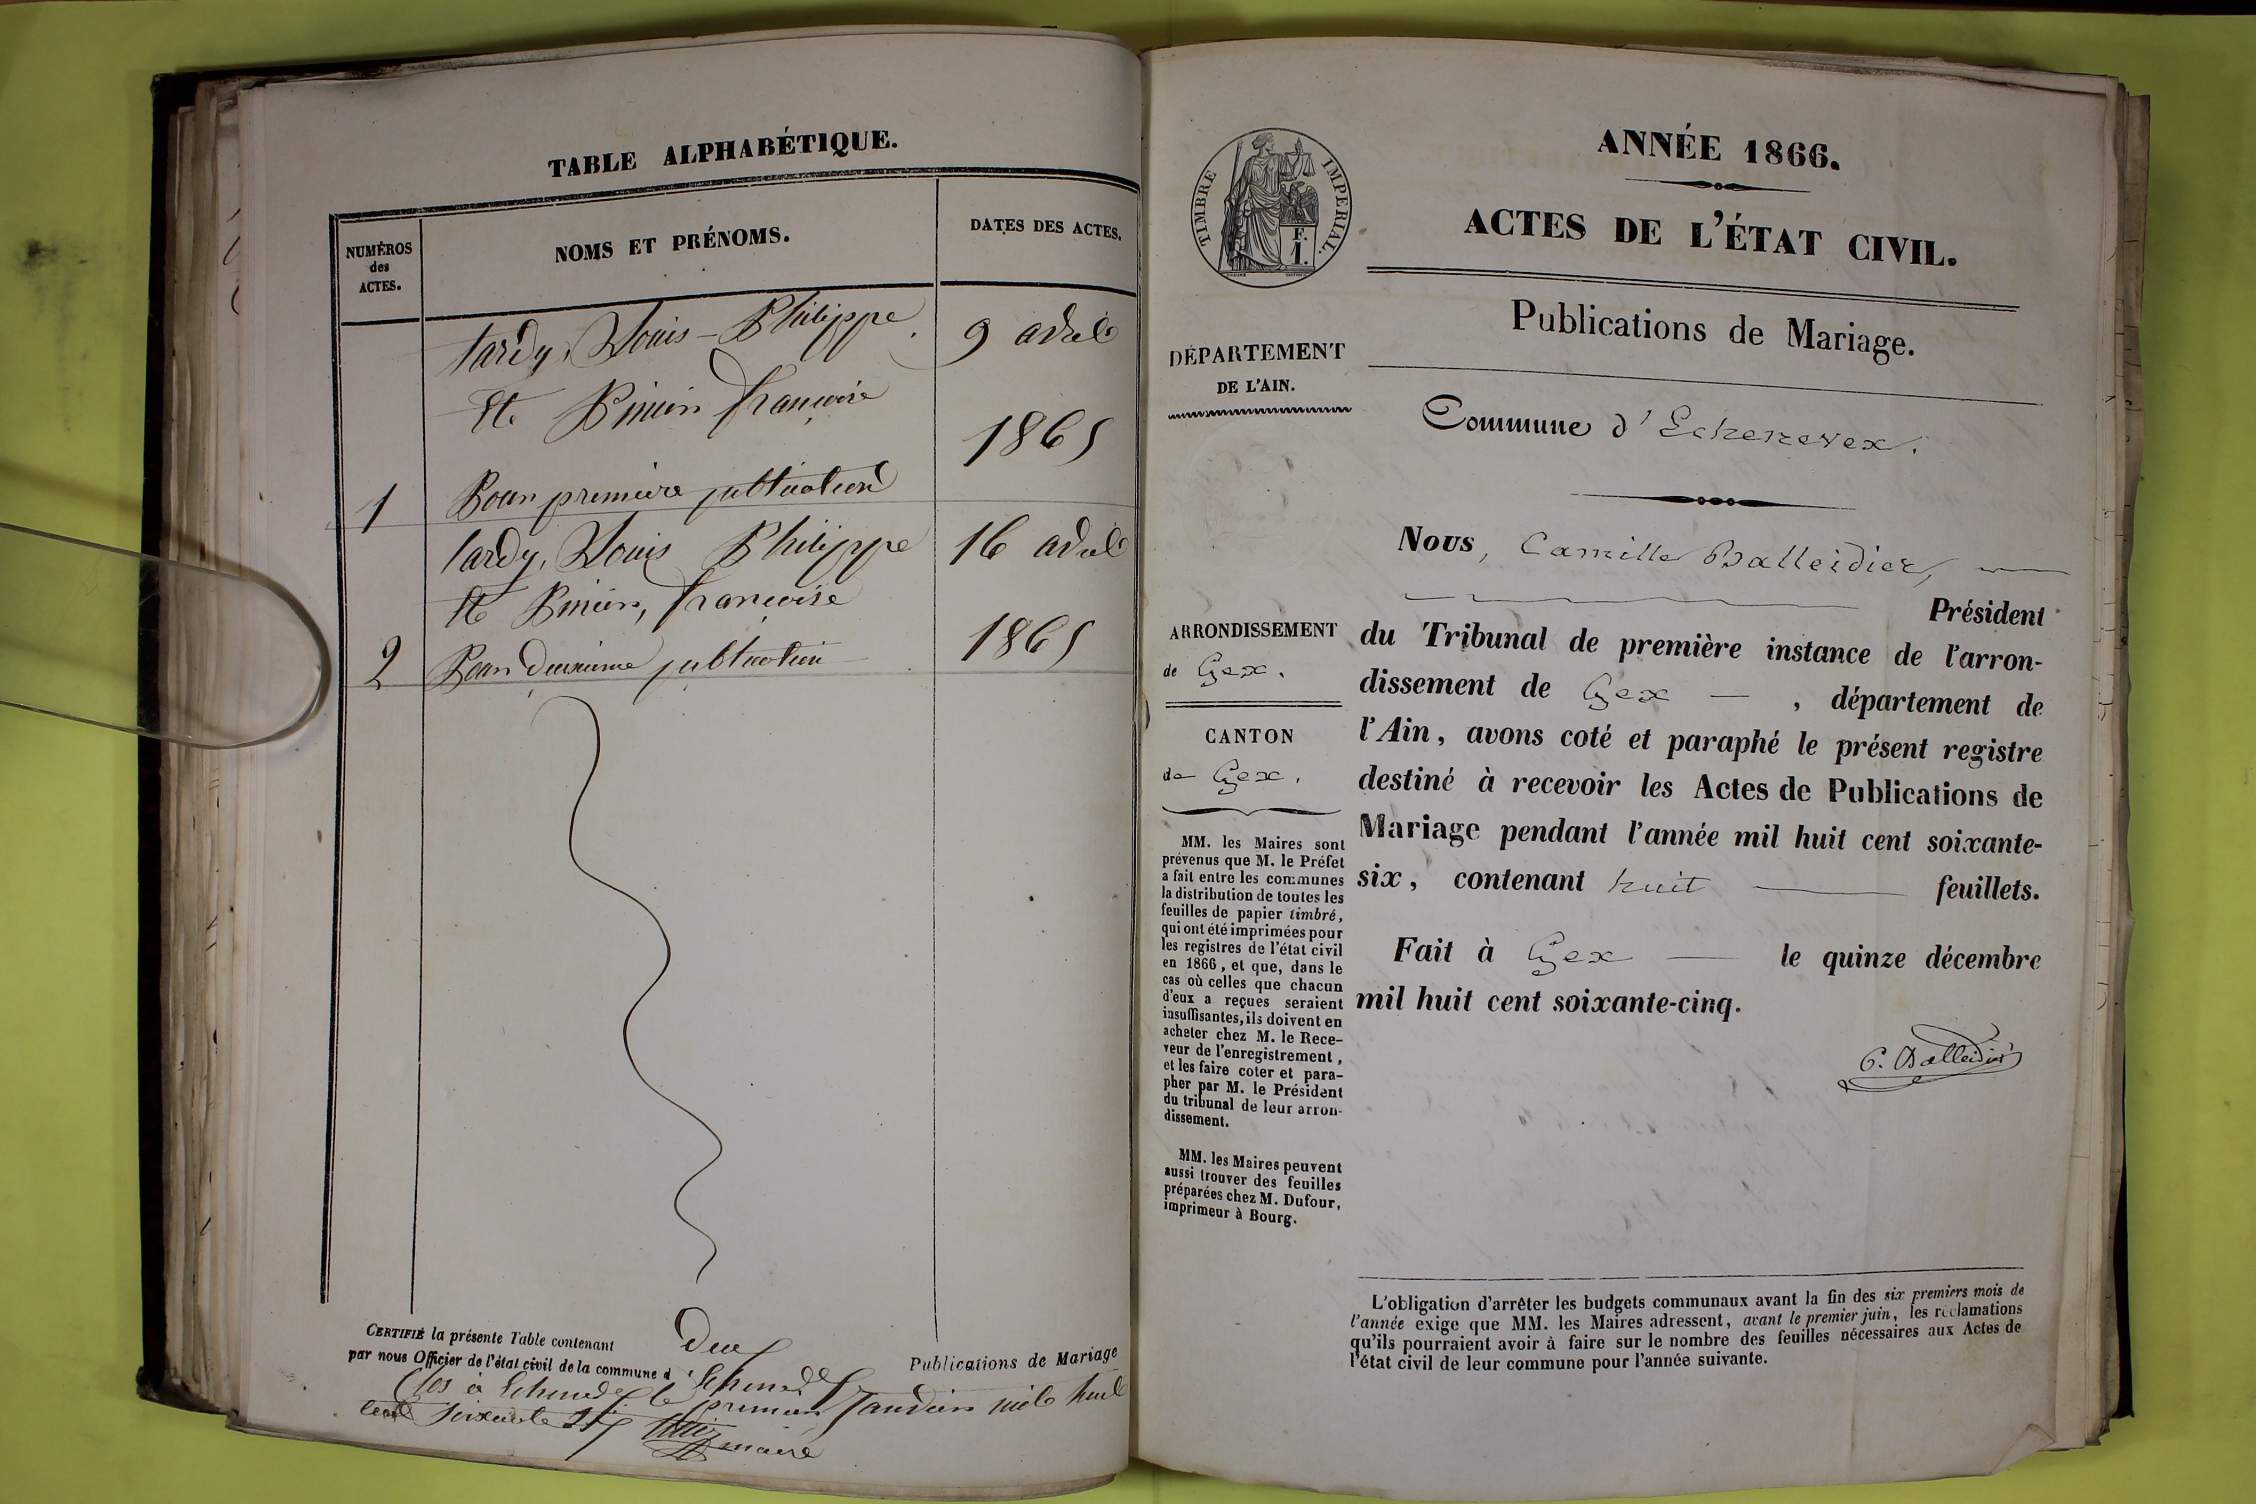 TABLE ALPHABÉTIQUE.
NUMÉROS
des
ACTES.
NOMS ET PRÉNOMS.
DATES DES ACTES.
tardy, Louis-Philippe
9 avril
françoise
1865
1
Pour première publication
tardy, Louis Philippe
16 avril
françoise
1865
2
Pour Deuxième publication
CERTIFIÉ la présente Table contenant Deux Publications de Mariage
par nous Officier de l'état civil de la commune d'Echenevex
Clos à Echenevex le premier Janvier mil huit
cent soixante six
maire
TIMBRE IMPERIAL.
F.
1.
ANNÉE 1866.
ACTES DE L'ÉTAT CIVIL.
Publications de Mariage.
DÉPARTEMENT
DE L'AIN.
Commune d'Echenevex.
ARRONDISSEMENT
de Gex.
CANTON
de Gex.
MM. les Maires sont
prévenus que M. le Préfet
a fait entre les communes
la distribution de toutes les
feuilles de papier timbré,
qui ont été imprimées pour
les registres de l'état civil
en 1866, et que, dans le
cas où celles que chacun
d'eux a reçues seraient
insuffisantes, ils doivent en
acheter chez M. le Rece-
veur de l'enregistrement,
et les faire coter et para-
pher par M. le Président
du tribunal de leur arron-
dissement.
MM. les Maires peuvent
aussi trouver des feuilles
préparées chez M. Dufour,
imprimeur à Bourg.
Nous, Camille Balleidier,
Président
du Tribunal de première instance de l'arron-
dissement de Gex — , département de
l'Ain, avons coté et paraphé le présent registre
destiné à recevoir les Actes de Publications de
Mariage pendant l'année mil huit cent soixante-
six, contenant huit — feuillets.
Fait à Gex — le quinze décembre
mil huit cent soixante-cinq.
C. Balleidier
L'obligation d'arrêter les budgets communaux avant la fin des six premiers mois de
l'année exige que MM. les Maires adressent, avant le premier juin, les réclamations
qu'ils pourraient avoir à faire sur le nombre des feuilles nécessaires aux Actes de
l'état civil de leur commune pour l'année suivante.